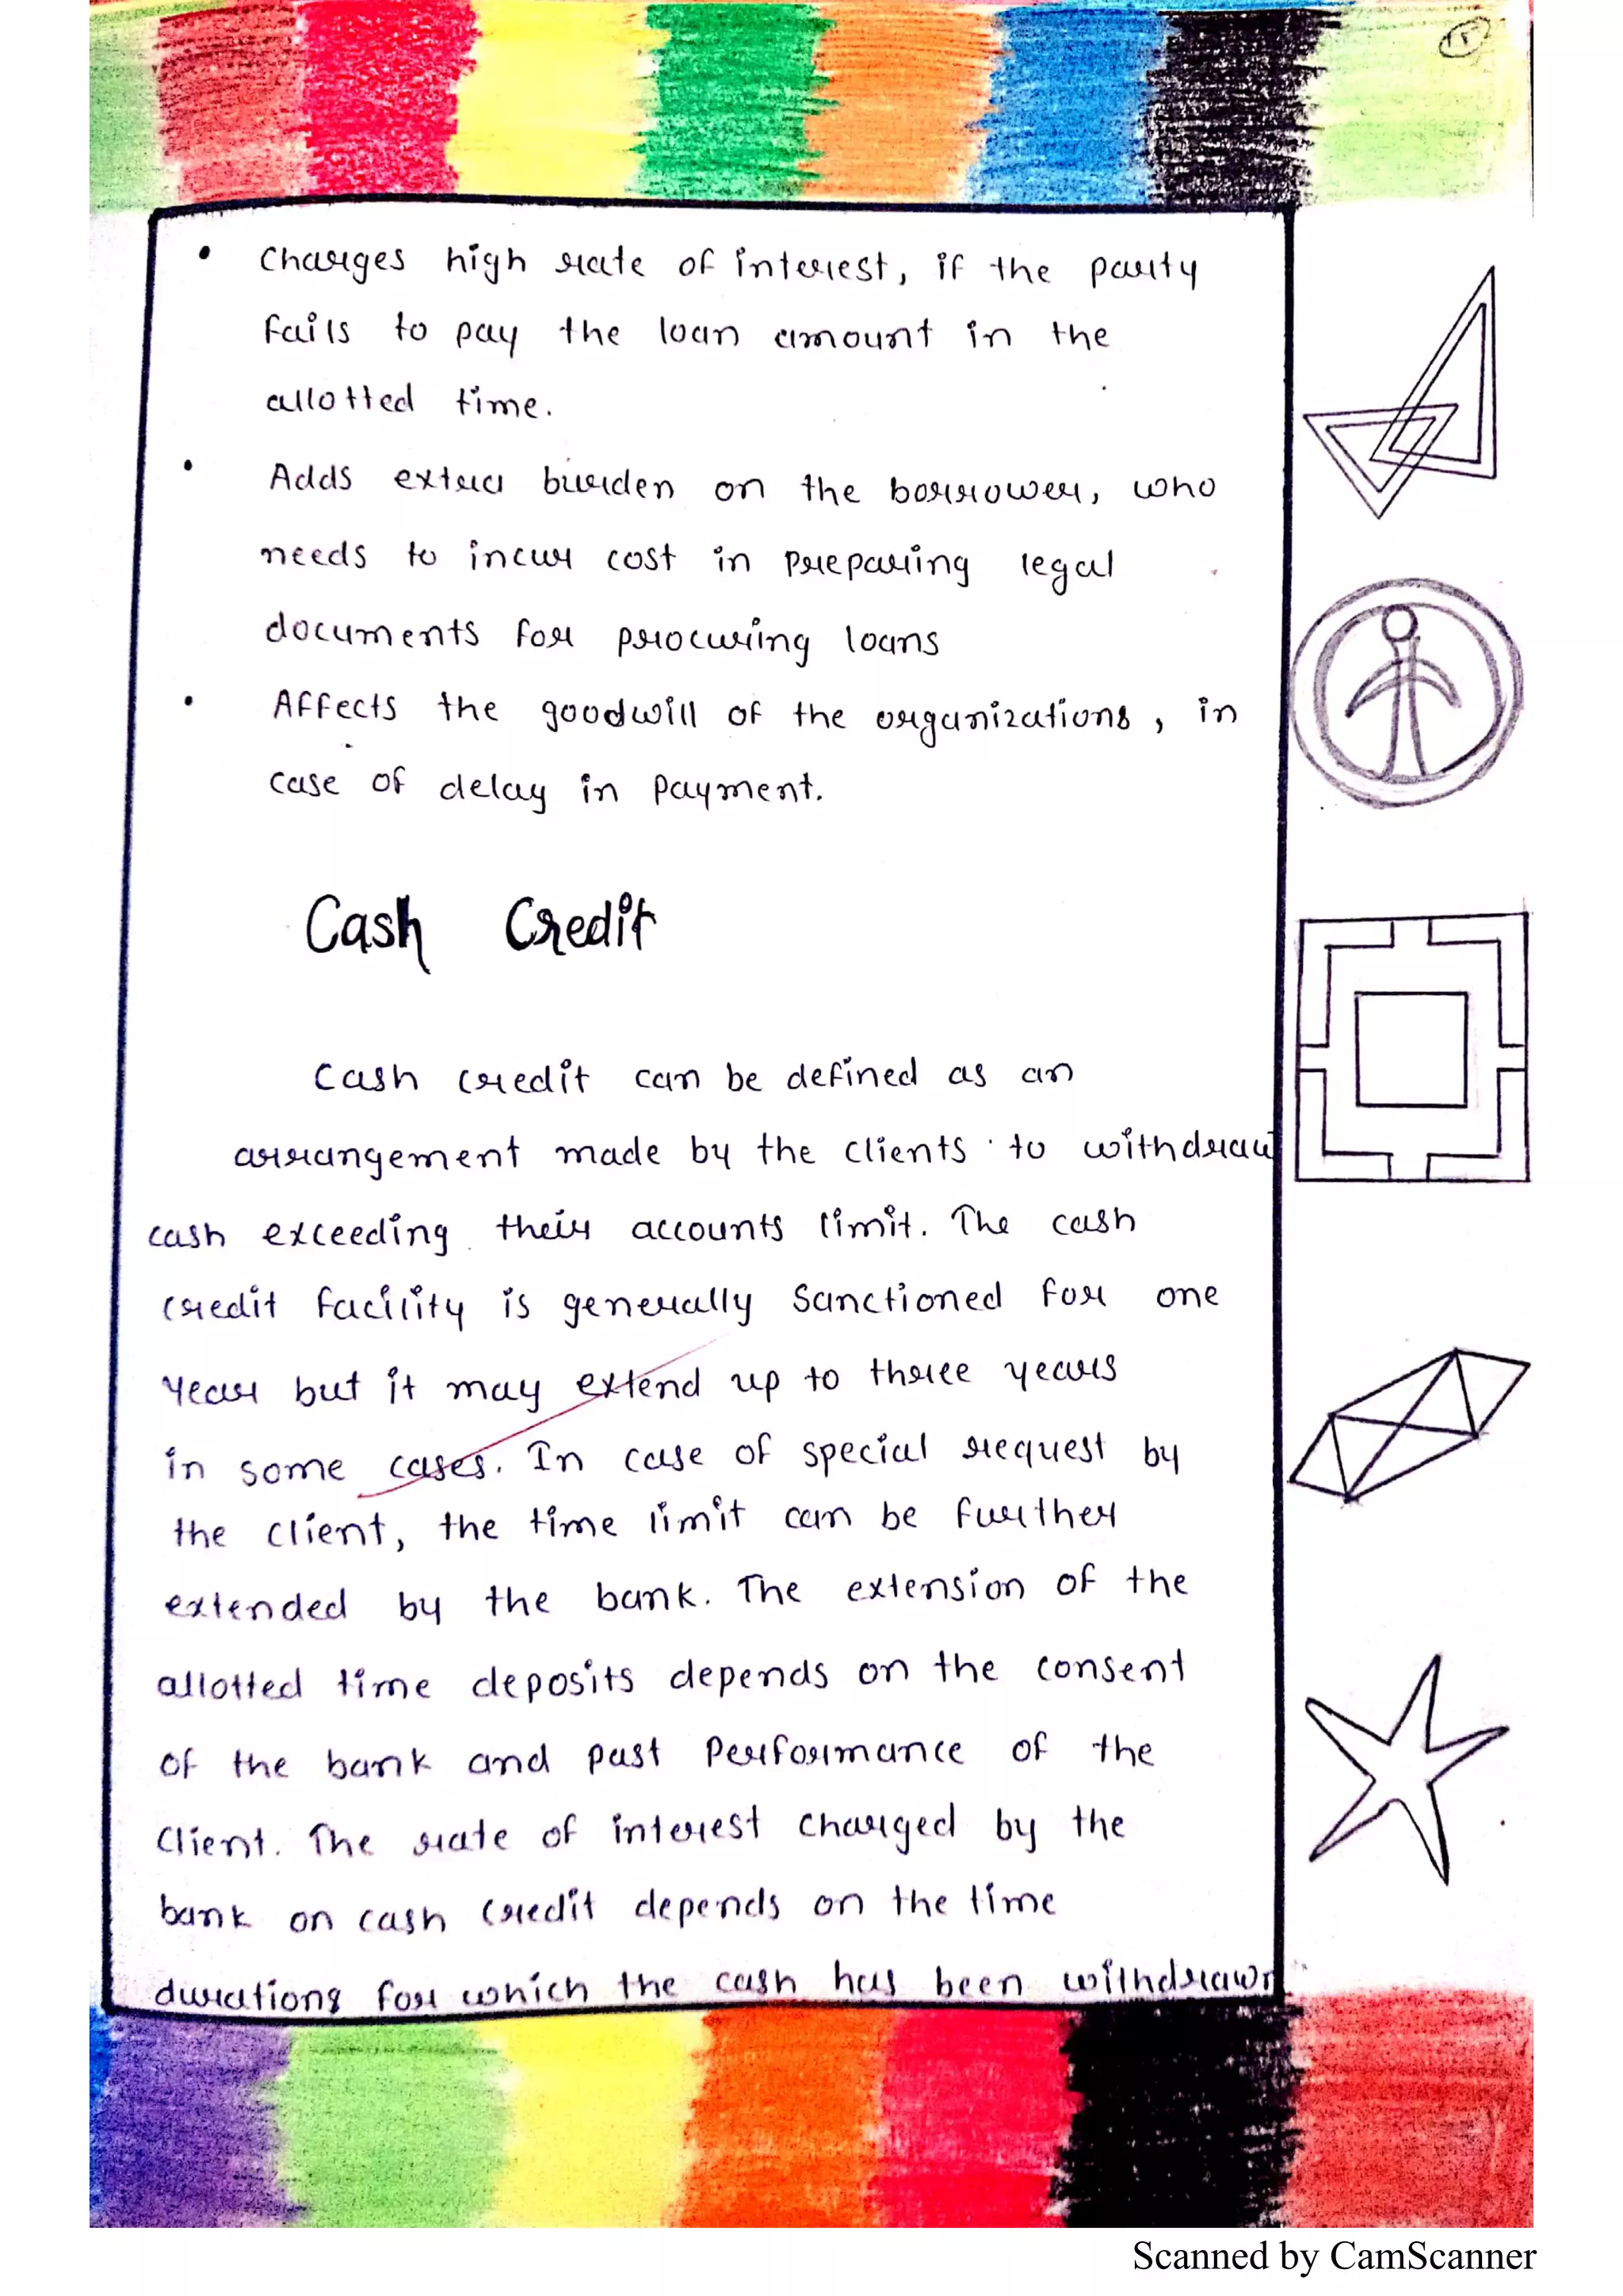 15
• Charges high rate of interest, if the party
fails to pay the loan amount in the
allotted time.
• Adds extra burden on the borrower, who
needs to incur cost in preparing legal
documents for procuring loans
• Affects the goodwill of the organizations, in
case of delay in payment.
Cash Credit
Cash credit can be defined as an
arrangement made by the clients to withdraw
cash exceeding their accounts limit. The cash
credit facility is generally sanctioned for one
year but it may extend up to three years
in some cases. In case of special request by
the client, the time limit can be further
extended by the bank. The extension of the
allotted time deposits depends on the consent
of the bank and past performance of the
client. The rate of interest charged by the
bank on cash credit depends on the time
durations for which the cash has been withdrawn
Scanned by CamScanner